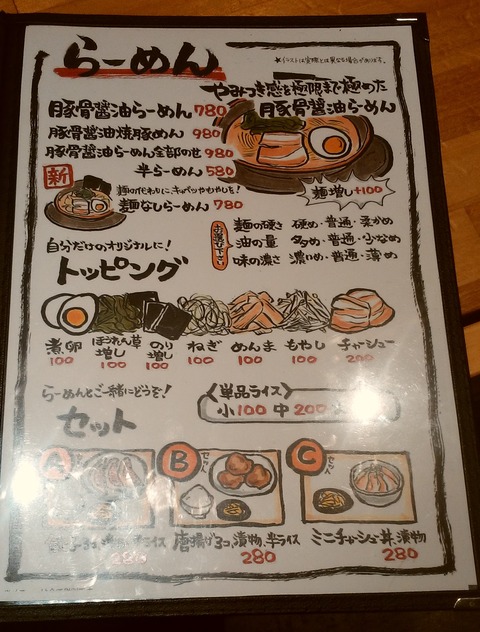 らーめん
★イラストは実際とは異なる場合があります。
やみつき感を極限まで極めた
豚骨醤油らーめん
豚骨醤油らーめん 780
豚骨醤油焼豚めん 980
豚骨醤油らーめん全部のせ 980
半らーめん 580
新
麺の代わりに、キャベツやもやしを!
麺なしらーめん 780
麺増し+100
お選び下さい
麺の硬さ 硬め・普通・柔かめ
油の量 多め・普通・少なめ
味の濃さ 濃いめ・普通・薄め
自分だけのオリジナルに!
トッピング
煮卵 100
ほうれん草増し 100
のり増し 100
ねぎ 100
めんま 100
もやし 100
チャーシュー 200
らーめんとご一緒にどうぞ!
セット
〈単品ライス〉
小100 中200
A
B セット
C セット
半ライス 280
唐揚げ3コ、漬物、半ライス 280
ミニチャーシュー丼、漬物 280